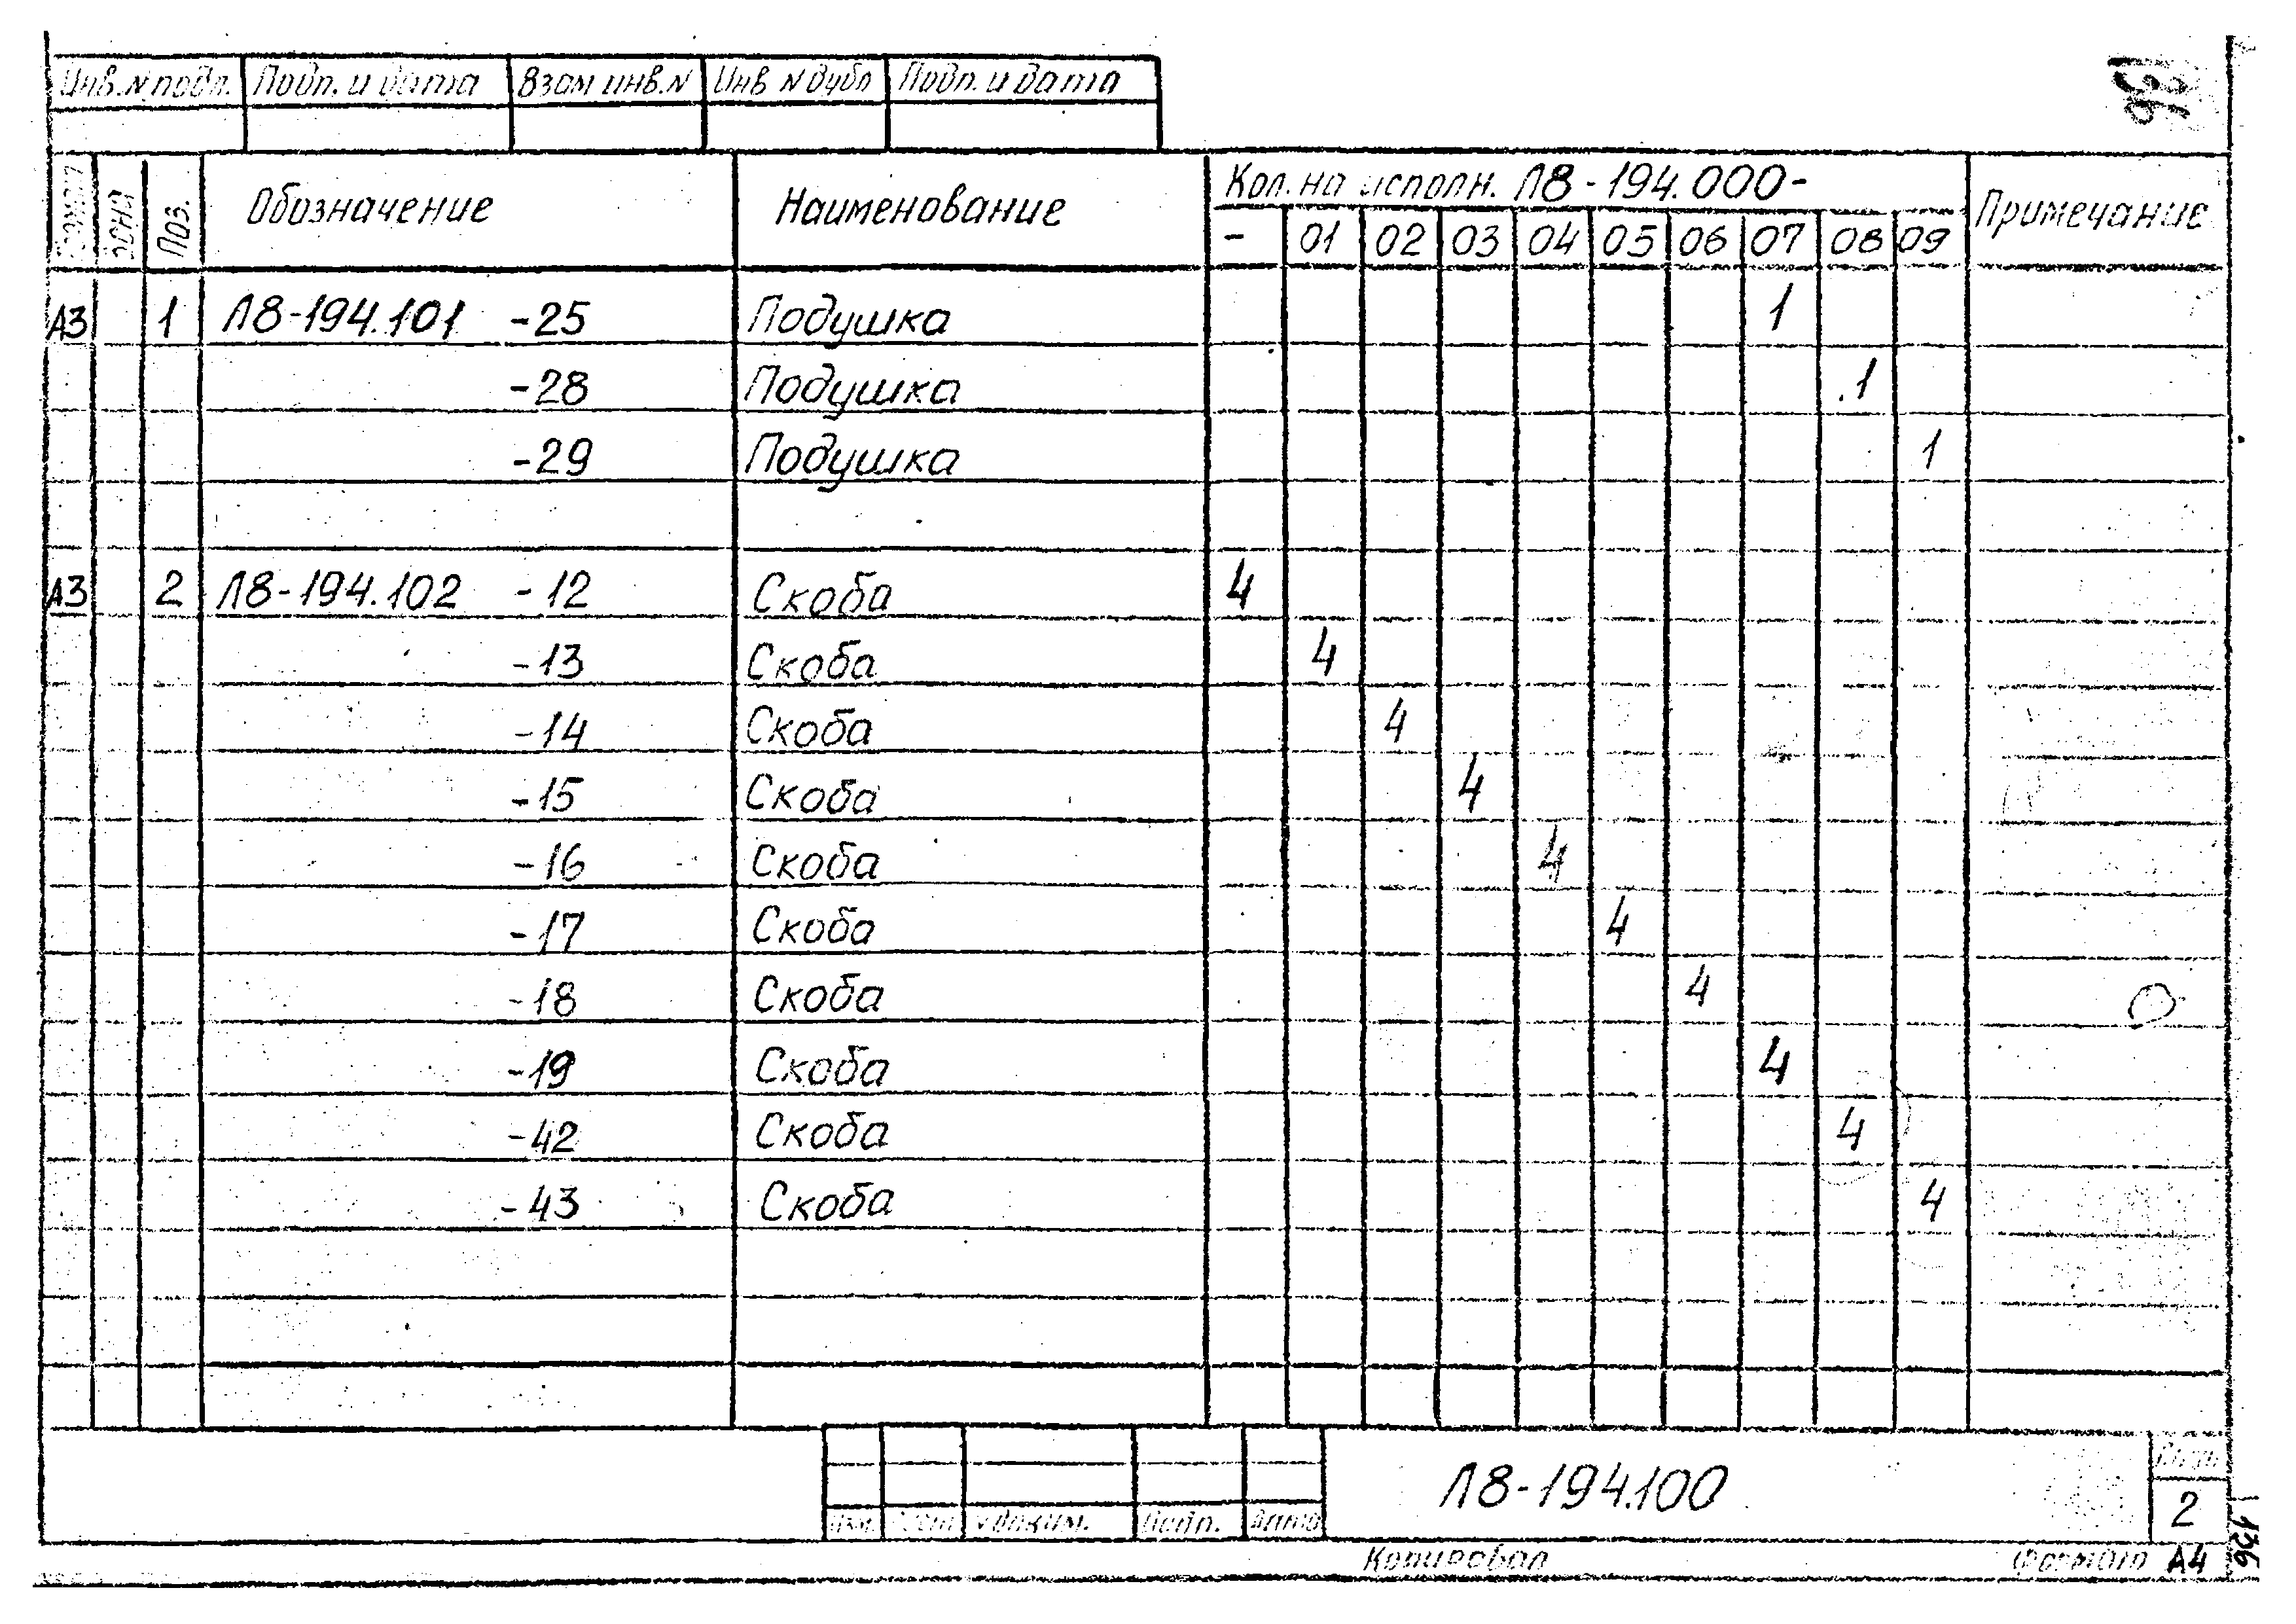 Инв. N подл. Подп. и дата Взам инв. N Инв N дубл Подп. и дата
Зона Поз. Обозначение Наименование Кол. на исполн. Л8-194.000- Примечание
- 01 02 03 04 05 06 07 08 09
А3 1 Л8-194.101 -25 Подушка 1
-28 Подушка 1
-29 Подушка 1
А3 2 Л8-194.102 -12 Скоба 4
-13 Скоба 4
-14 Скоба 4
-15 Скоба 4
-16 Скоба 4
-17 Скоба 4
-18 Скоба 4
-19 Скоба 4
-42 Скоба 4
-43 Скоба 4
Л8-194.100
2
Изм. Лист N докум. Подп. Дата
Копировал Формат А4